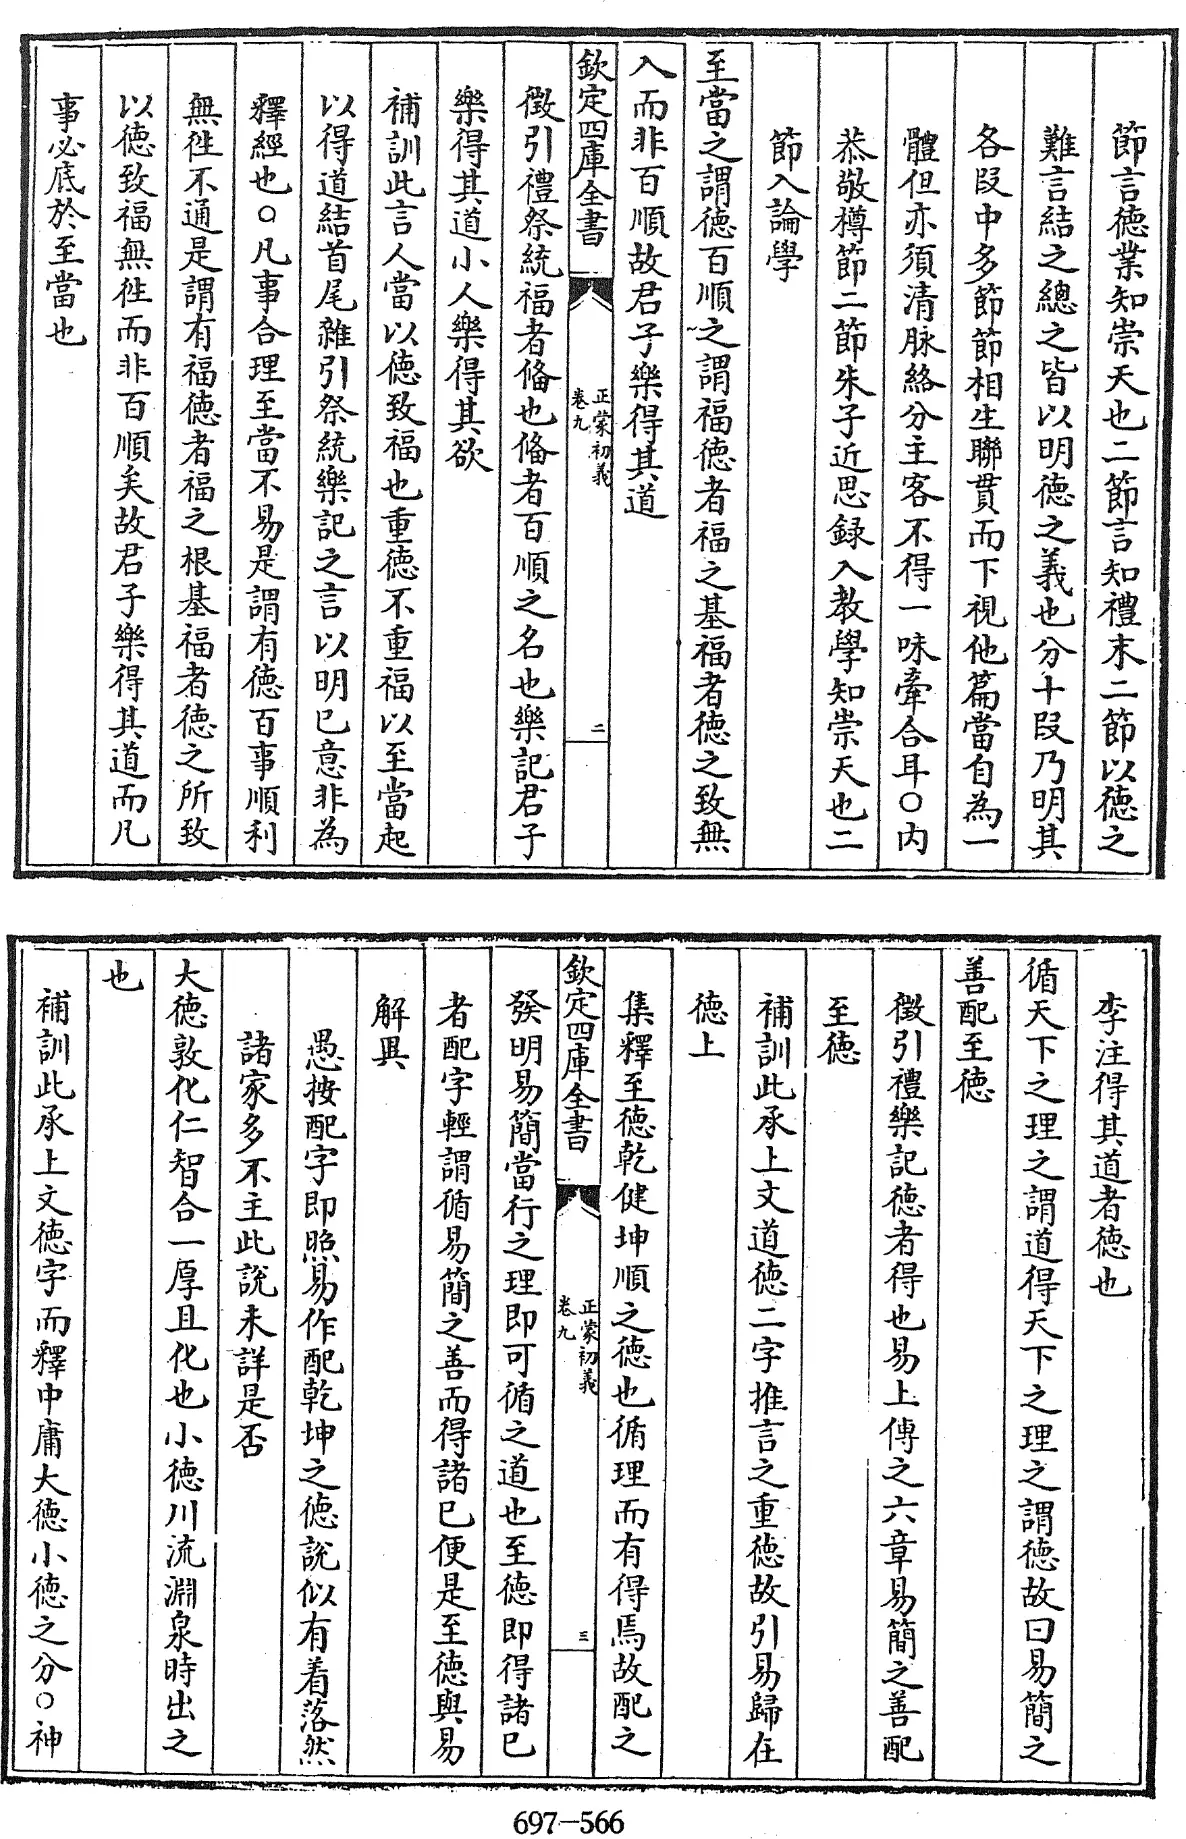 節言徳業知崇天也二節言知禮末二節以徳之
難言結之總之皆以明徳之義也分十段乃明其
各段中多節節相生聯貫而下視他篇當自為一
體但亦須清脉絡分主客不得一味牽合耳○内
恭敬樽節二節朱子近思録入教學知崇天也二
節入論學
至當之謂徳百順之謂福徳者福之基福者徳之致無
入而非百順故君子樂得其道
欽定四庫全書
正蒙初義
卷九
二
徵引禮祭統福者偹也偹者百順之名也樂記君子
樂得其道小人樂得其欲
補訓此言人當以徳致福也重徳不重福以至當起
以得道結首尾雜引祭統樂記之言以明已意非為
釋經也○凡事合理至當不易是謂有徳百事順利
無徃不通是謂有福徳者福之根基福者徳之所致
以徳致福無徃而非百順矣故君子樂得其道而凡
事必底於至當也
李注得其道者徳也
循天下之理之謂道得天下之理之謂徳故曰易簡之
善配至徳
徵引禮樂記徳者得也易上傳之六章易簡之善配
至徳
補訓此承上文道徳二字推言之重徳故引易歸在
徳上
集釋至徳乾健坤順之徳也循理而有得焉故配之
欽定四庫全書
正蒙初義
卷九
三
發明易簡當行之理即可循之道也至徳即得諸已
者配字輕謂循易簡之善而得諸已便是至徳與易
解異
愚按配字即照易作配乾坤之徳說似有着落然
諸家多不主此說未詳是否
大徳敦化仁智合一厚且化也小徳川流淵泉時出之
也
補訓此承上文徳字而釋中庸大徳小徳之分○神
697-566